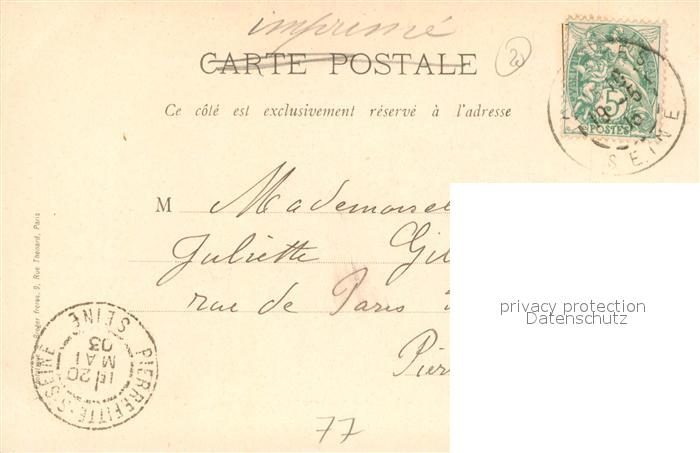 imprimé
CARTE POSTALE
Ce côté est exclusivement réservé à l'adresse
5
POSTES
SEINE
M Mademoisel
Juliette Gil
rue de Paris
Pier
privacy protection
Datenschutz
frères, 9, Rue Thenard, Paris
PIERREFITTE-S-SEINE
SEINE
1E 20
MAI
03
77